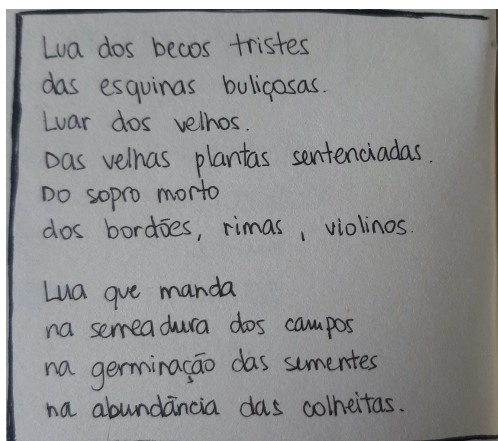 Lua dos becos tristes
das esquinas buliçosas.
Luar dos velhos.
Das velhas plantas sentenciadas.
Do sopro morto
dos bordões, rimas, violinos.
Lua que manda
na semeadura dos campos
na germinação das sementes
na abundância das colheitas.